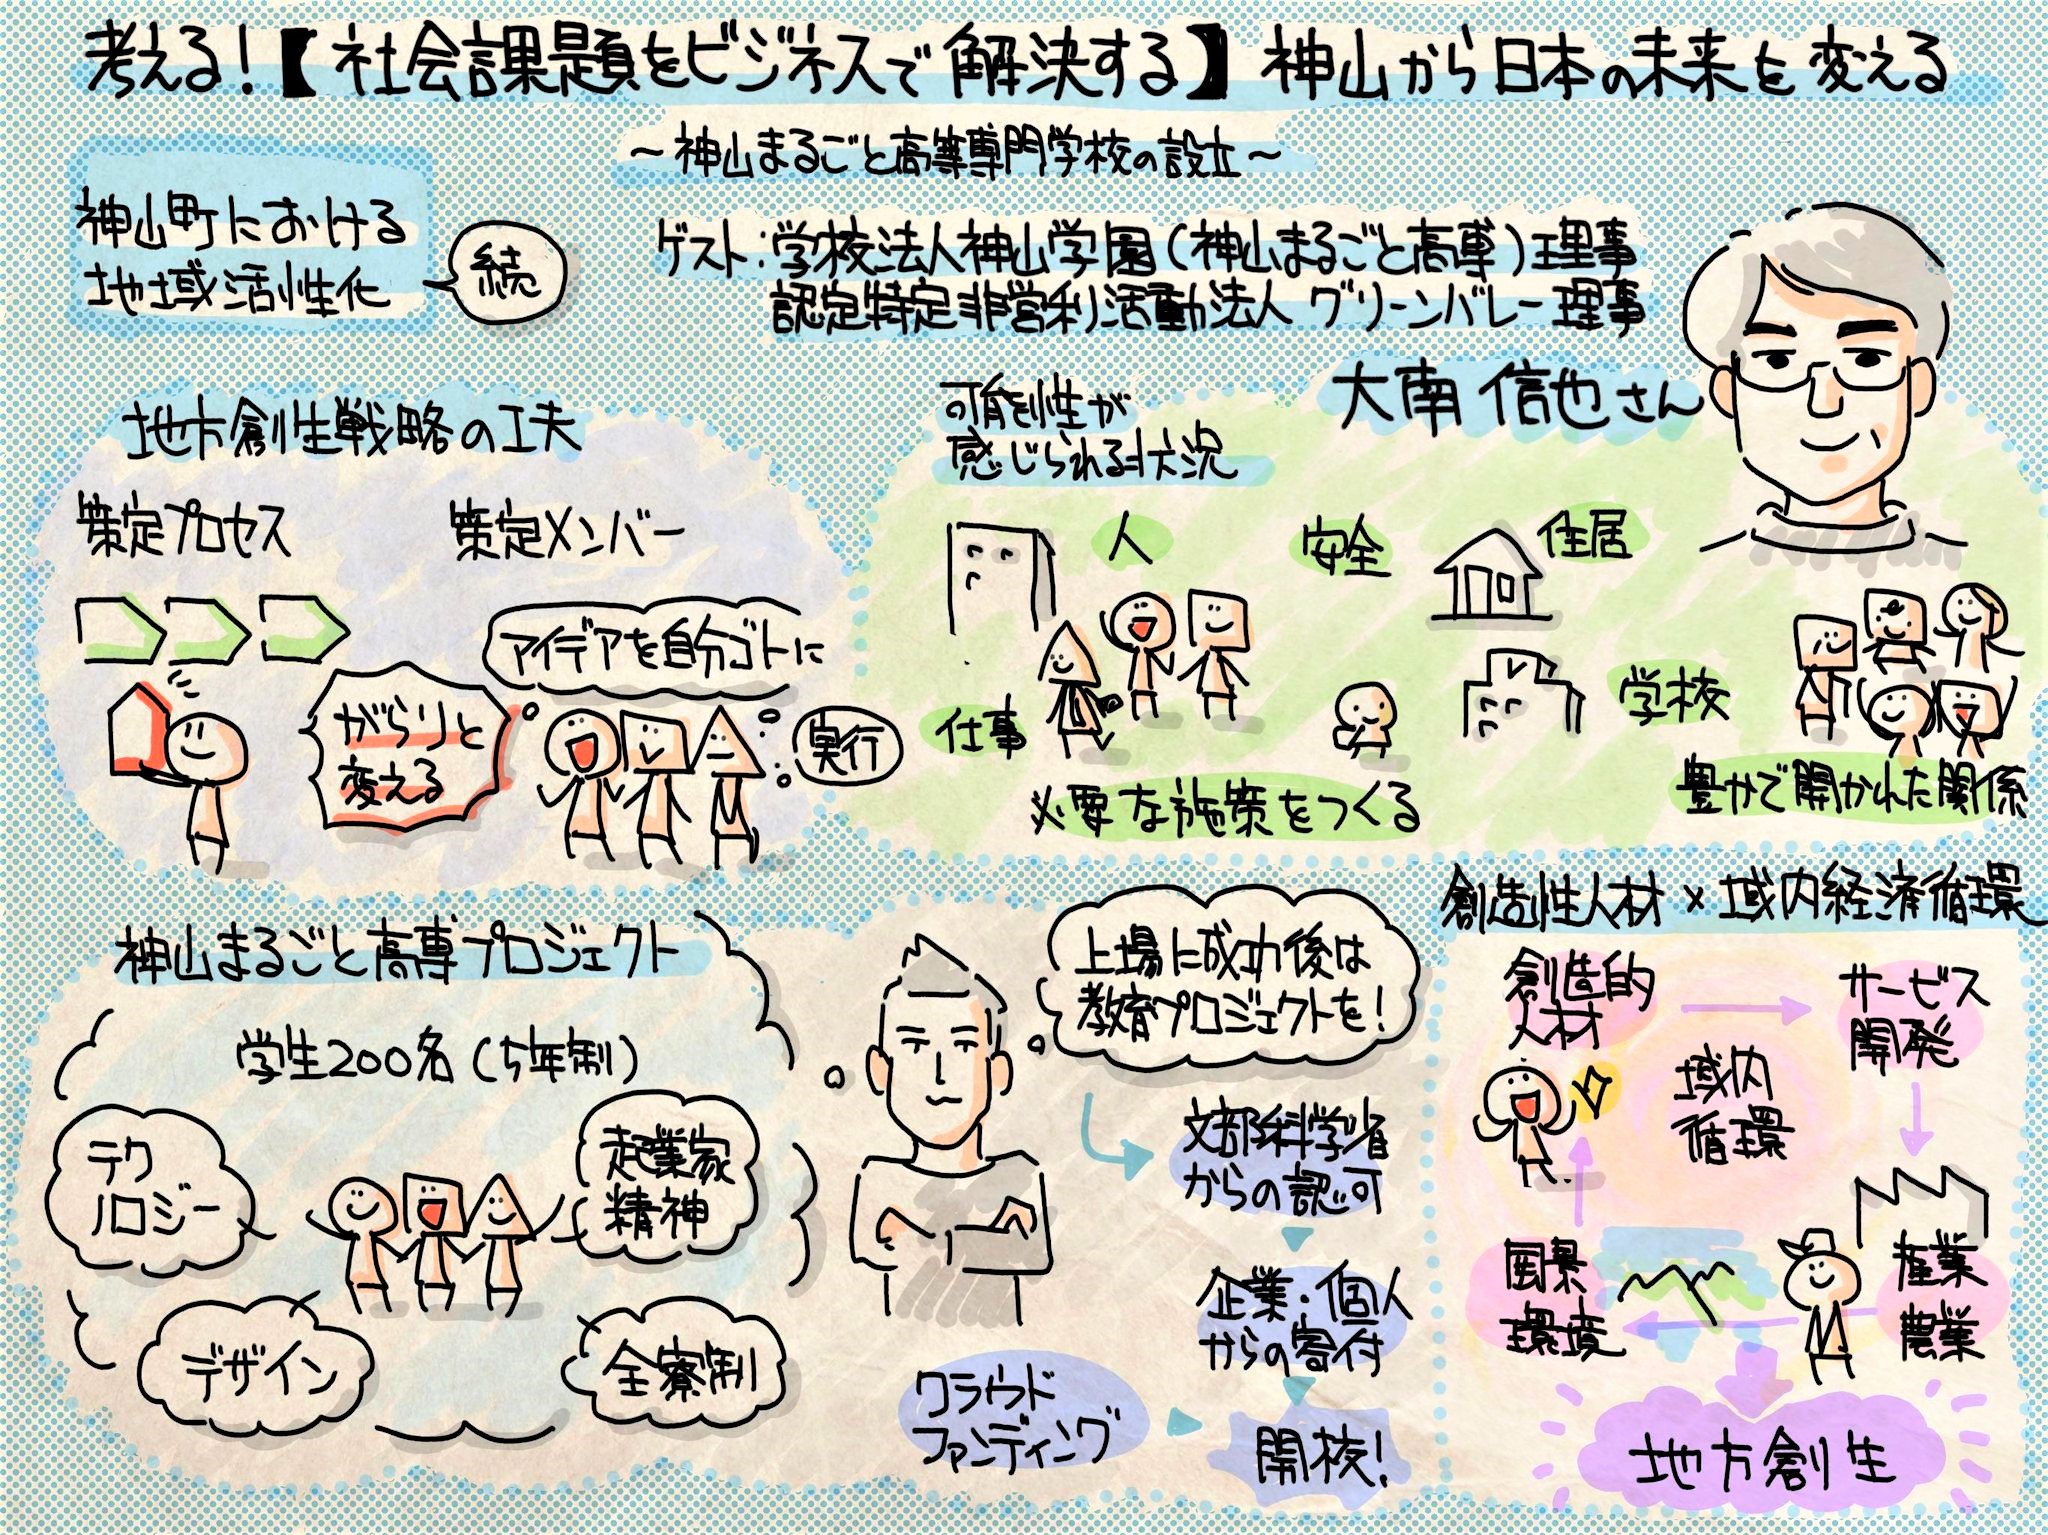 考える!【社会課題をビジネスで解決する】神山から日本の未来を変える
～神山まるごと高等専門学校の設立～
神山町における
地域活性化
続
ゲスト:学校法人神山学園(神山まるごと高専)理事
認定特定非営利活動法人グリーンバレー理事
大南 信也さん
地方創生戦略の工夫
策定プロセス
策定メンバー
がらりと
変える
アイデアを自分ゴトに
実行
可能性が
感じられる状況
人
安全
住居
仕事
学校
必要な施策をつくる
豊かで開かれた関係
神山まるごと高専プロジェクト
学生200名(5年制)
テク
ノロジー
起業家
精神
デザイン
全寮制
上場に成功後は
教育プロジェクトを!
文部科学省
からの認可
企業・個人
からの寄付
クラウド
ファンディング
開校!
創造性人材×域内経済循環
創造的
人材
サービス
開発
域内
循環
風景
環境
産業
農業
地方創生